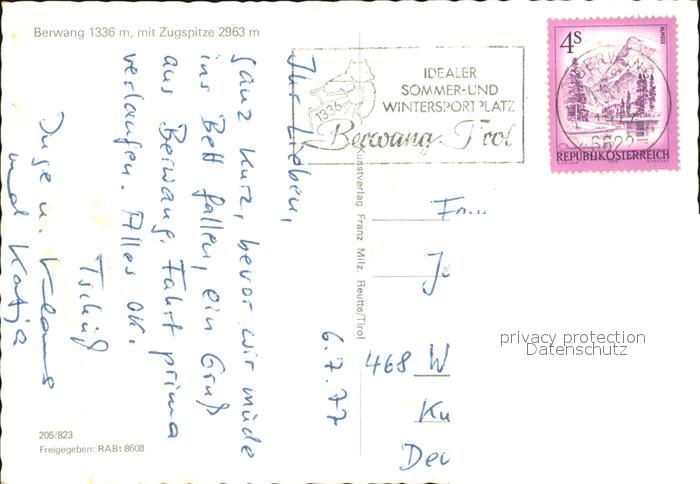 Berwang 1336 m, mit Zugspitze 2963 m
IDEALER
SOMMER-UND
WINTERSPORTPLATZ
1336 m
Berwang Tirol
4 S
ALMSEE
6622
REPUBLIK ÖSTERREICH
6.7.77
Ihr Lieben,
ganz kurz, bevor wir müde
ins Bett fallen, ein Gruß
aus Berwang. Fahrt prima
verlaufen. Alles OK.
Tschüß
Inge u. Klaus
und Katja
Kunstverlag Franz Milz, Reutte/Tirol
468 W
Ku
privacy protection
Datenschutz
205/823
Freigegeben: RABt 8608